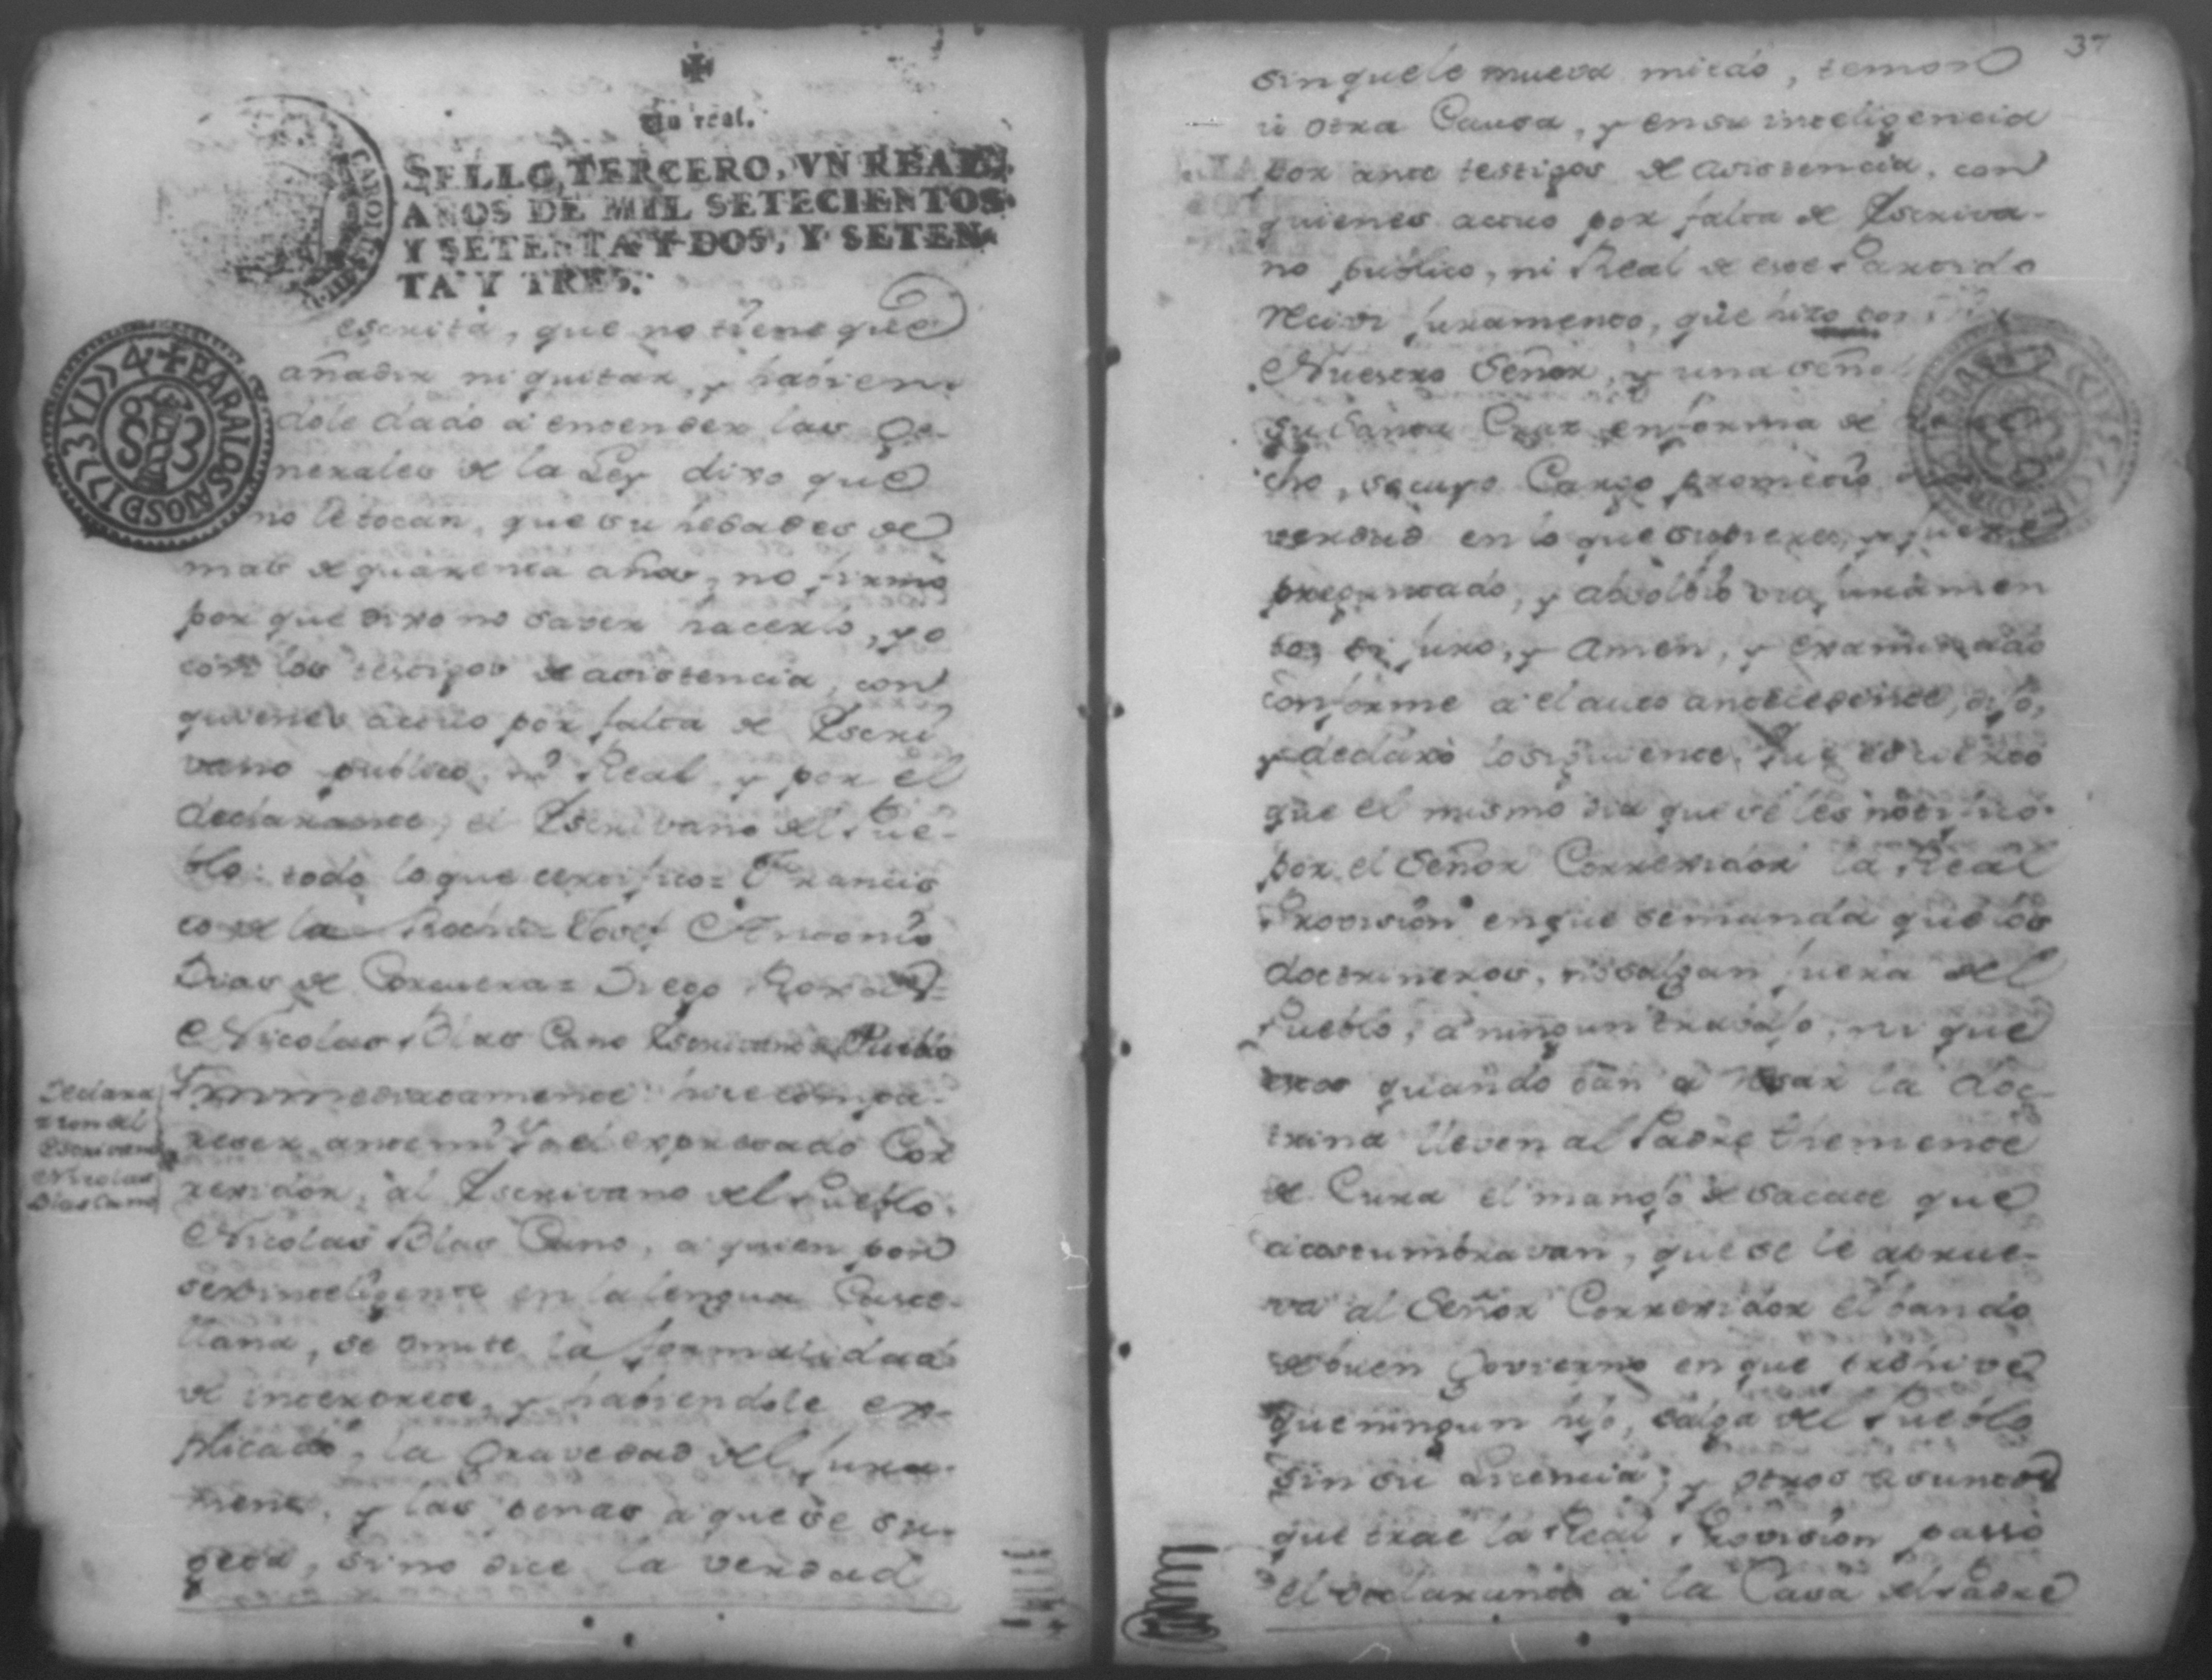 Un real.
SELLO TERCERO, VN REAL,
AÑOS DE MIL SETECIENTOS
Y SETENTA Y DOS, Y SETEN-
TA Y TRES.
CAROLUS III
PARALOSAÑOSD1773Y1774
escrita, que no tiene que
añadir ni quitar, y havien-
dole dado à entender las Ge-
nerales de la Ley dixo que
no le tocan, que su hedad es de
mas de quarenta años, no firmò
por que dixo no saver hacerlo, yo
con los testigos de asistencia, con
quienes actuo por falta de Escri
vano publico, ni Real, y por el
declarante, el Escrivano del Pue-
blo: todo lo que certifico= Francis
co de la Rocha= Josef Antonio
Dias de Corcuera= Diego
Nicolas Blas Cano Escrivano de Pueblo
Declara
zion del
Escrivano
Nicolas
Blas Cano
Ynmediatamente hice compa-
recer ante mì Yo el expresado Cor
rexidor, al Escrivano del Pueblo
Nicolas Blas Cano, a quien por
ser inteligente en la lengua Caste-
llana, se omite la formalidad
de interprete, y haviendole ex-
plicado, la gravedad del jura-
mento, y las penas a que se su-
geta, sino dice la verdad
37
sin que le mueva miedo, temor
ù otra Causa, y en su inteligencia
por ante testigos de asistencia, con
quienes actuo por falta de Escriva-
no publico, ni Real de este Partido
recivi juramento, que hizo por
Nuestro Señor, y una señal
su Santa Cruz en forma de
cho, so cuyo Cargo prometiò
verdad en lo que supiere, y fuere
preguntado, y absolbiò juramen
to, si juro, y Amen, y examinado
conforme a el auto antecedente, dijo,
y declarò lo siguiente. Que es cierto
que el mismo dia que se les notifico
por el Señor Correxidor la Real
Provision en que se manda que los
doctrineros, no salgan fuera del
Pueblo, à ningun travajo, ni que
estos quando van a resar la doc-
trina lleven al Padre Theniente
de Cura el manojo de sacate que
acostumbravan, que se le aprue-
va al Señor Correxidor el bando
de buen govierno en que prohive
que ningun hijo, salga del Pueblo
sin su licencia; y otros asuntos
que trae la Real Provision passò
el declarante a la Casa del Padre